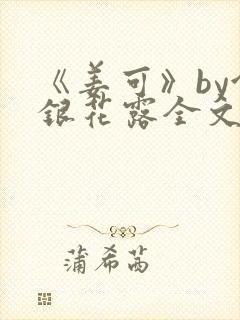 《姜可》by
银花露全文
蒲希茜